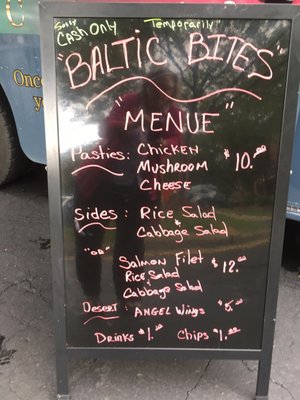 Sorry Temporarily
Cash Only
"Baltic Bites"
"Menue"
Pasties: Chicken
Mushroom $10.00
Cheese
Sides: Rice Salad
&
Cabbage Salad
"or"
Salmon Filet $12.00
Rice Salad
&
Cabbage Salad
Desert: Angel Wings $5.00
Drinks $1.00 Chips $1.00
Once
y